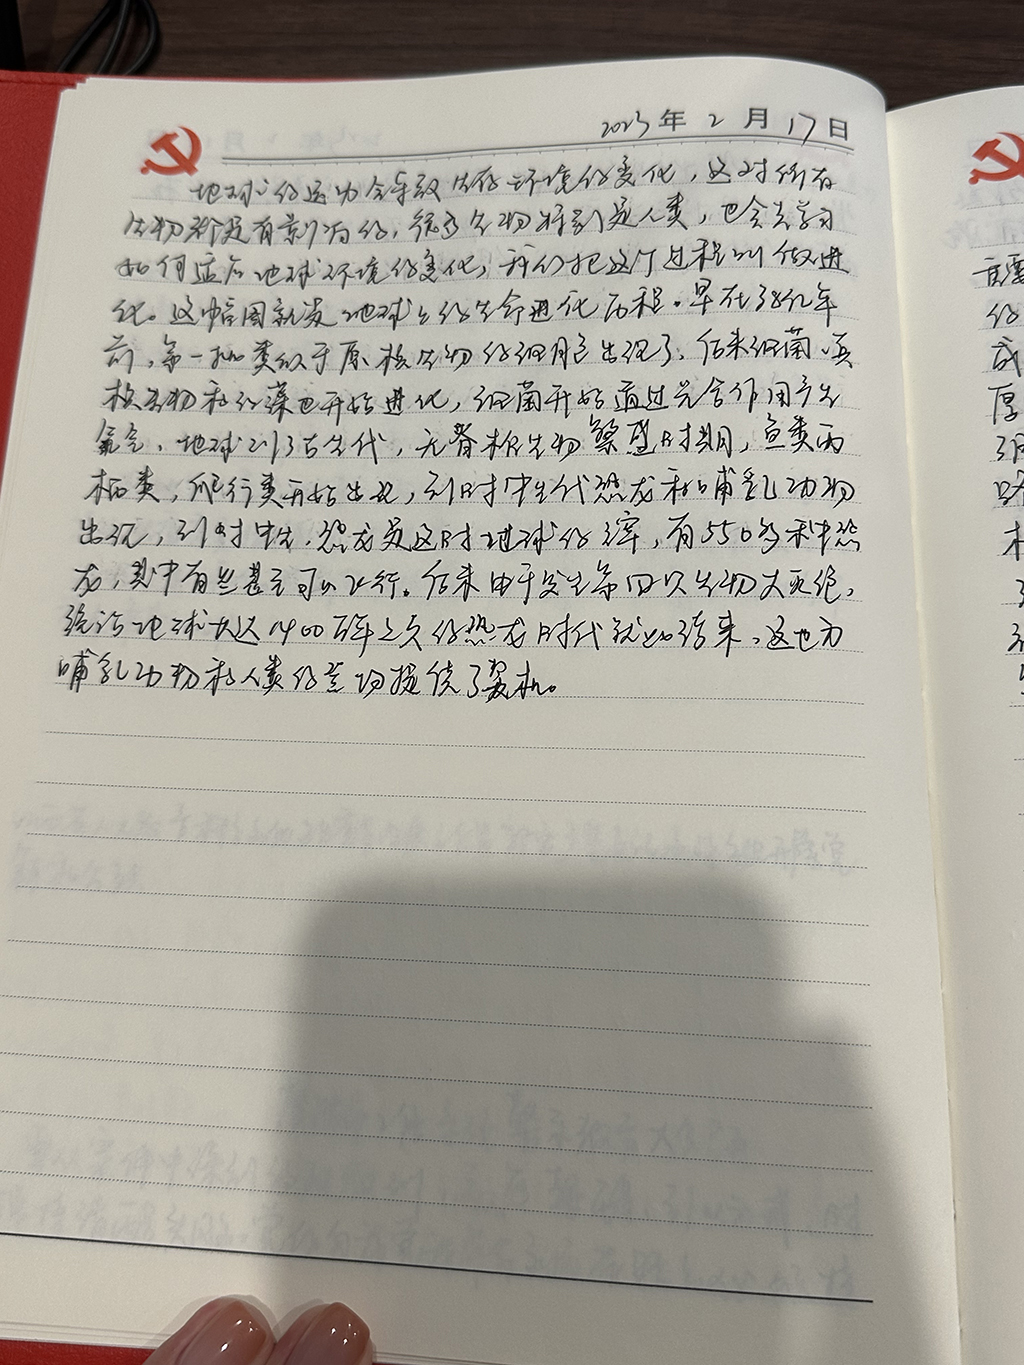 2023年2月17日
地球的运动会导致生存环境的变化，这对所有
生物都是有影响的，很多生物特别是人类，也会去学习
如何适应地球环境的变化，我们把这个过程叫做进
化。这幅图就是地球上的生命进化历程。早在38亿年
前，第一批类似于原核生物的细胞出现了，后来细菌、真
核生物和红藻也开始进化，细菌开始通过光合作用产生
氧气，地球到了古生代，无脊椎生物繁盛时期，鱼类两
栖类，爬行类开始出现，到时中生代恐龙和哺乳动物
出现，到时中生，恐龙是这时地球的主宰，有550多种恐
龙，其中有些甚至可以飞行。后来由于发生第四次生物大灭绝，
统治地球长达1400万年之久的恐龙时代就此结束，这也为
哺乳动物和人类的登场提供了契机。
主要
的
成
厚